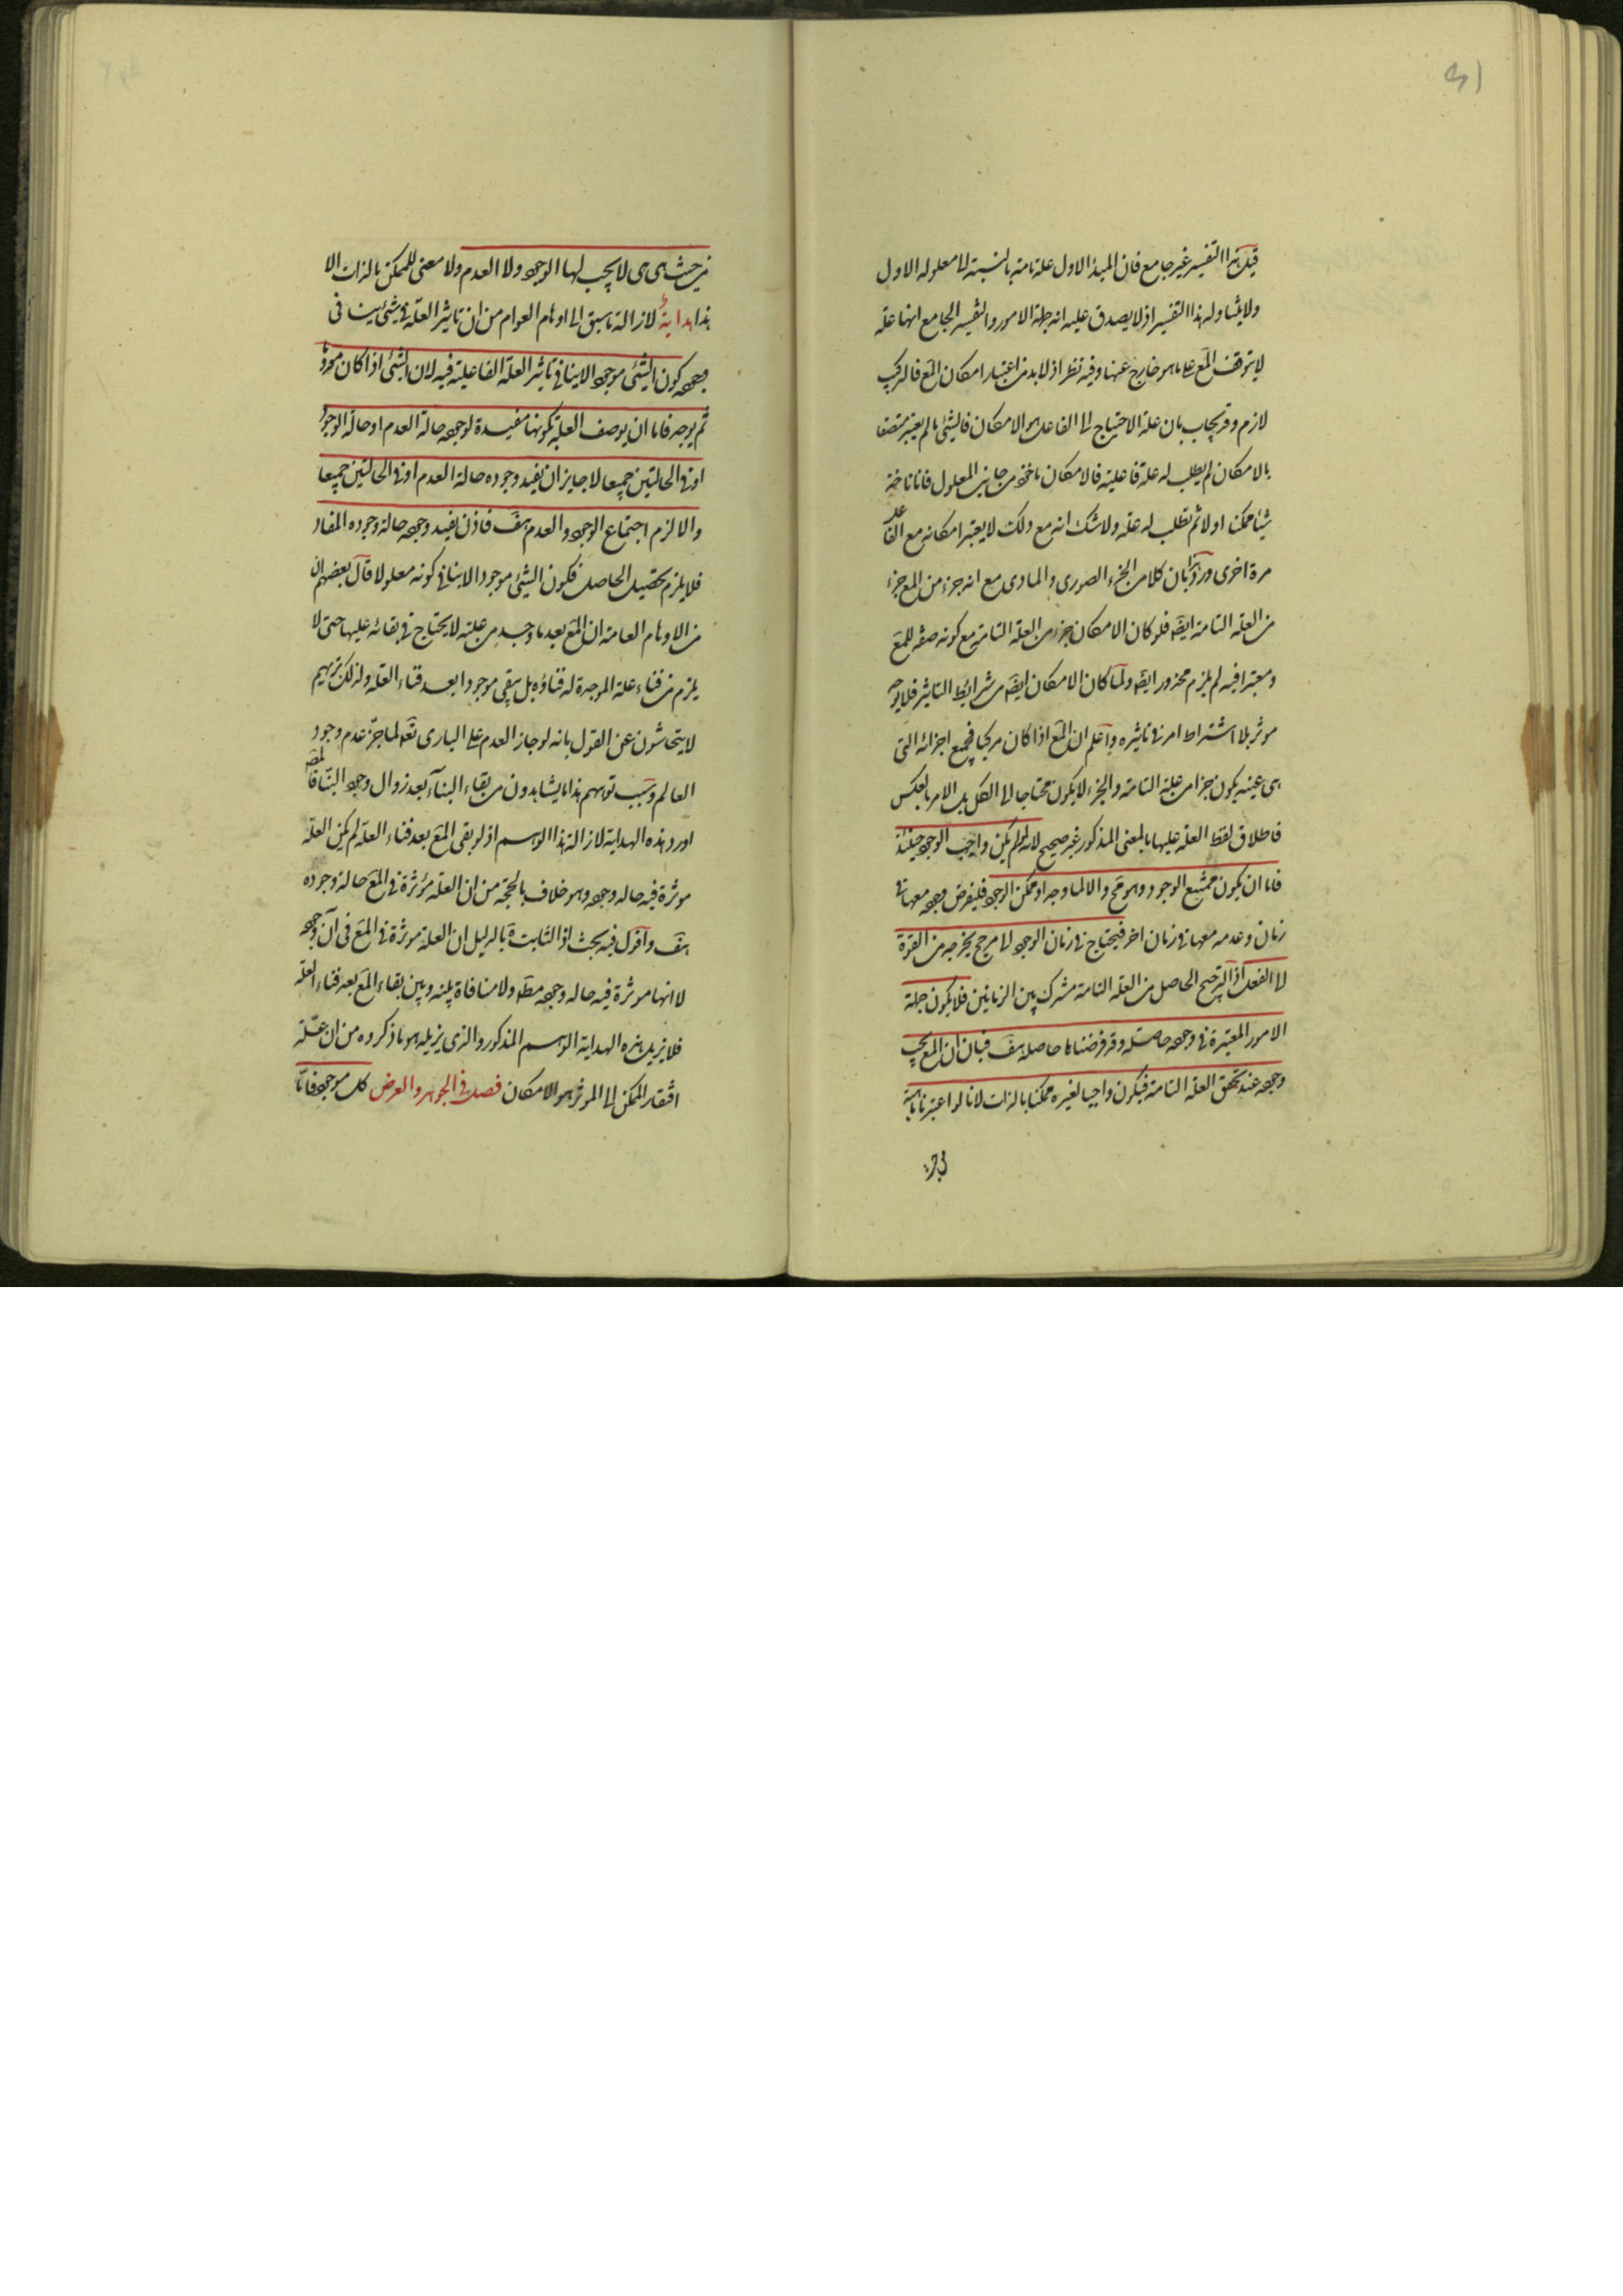 قيل هذا التفسير غير جامع فان المبدأ الاول علة تامة بالنسبة الى معلوله الاول
ولا يتناوله هذا التفسير اذ لا يصدق عليه انه جملة الامور والتفسير الجامع انها علة
لا يتوقف المع على ما هو خارج عنها وفيه نظر اذ لا بد من اعتبار امكان المع فالتركيب
لازم وقد يجاب بان علة الاحتياج الى الفاعل هو الامكان فالشئ ما لم يعتبر متصفا
بالامكان لم يطلب له علة فاعلية فالامكان ماخوذ من جانب المعلول فانا ناخذ
شيئا ممكنا اولا ثم نطلب له علة ولا شك انه مع ذلك لا يعتبر امكانه مع الفاعل
مرة اخرى ورد هذا بان كلا من الجزء الصورى والمادى مع انه جزء من المع جزء
من العلة التامة ايضا فلو كان الامكان جزء من العلة التامة مع كونه صفة للمع
ومعتبرا فيه لم يلزم محذور ايضا ولما كان الامكان ايضا من شرائط التاثير فلا يوجد
موثر بلا اشتراط امر فى تاثيره واعلم ان المع اذا كان مركبا فجميع اجزائه التى
هى عينه يكون جزا من علة التامة والجزء لا يكون محتاجا الى الكل بل الامر بالعكس
فاطلاق لفظ العلة عليها بالمعنى المذكور غير صحيح لانه لو لم يكن واجب الوجود حينئذ
فاما ان يكون ممتنع الوجود وهو مح والا لما وجد او ممكن الوجود فليفرض وجوده معها فى
زمان وعدمه معها فى زمان اخر فيحتاج فى زمان الوجود الى مرجح يخرجه من القوة
الى الفعل اذ الترجيح الحاصل من العلة التامة مشترك بين الزمانين فلا يكون جملة
الامور المعتبرة فى وجوده حاصلة وقد فرضناها حاصلة هف فبان ان المع يجب
وجوده عند تحقق العلة التامة فيكون واجبا لغيره ممكنا بالذات لانا لو اعتبرنا ماهية
من حيث هى هى لا يجب لها الوجود ولا العدم ولا معنى للممكن بالذات الا
هذا هداية لازالة ما سبق الى اوهام العوام من ان تاثير العلة فى شئ ينافى
وجوده كون الشئ موجودا لا ينافى تاثير العلة الفاعلية فيه لان الشئ اذا كان معدوما
ثم يوجد فاما ان يوصف العلة بكونها مفيدة لوجوده حالة العدم او حالة الوجود
او فى الحالتين جميعا لا جايز ان يفيد وجوده حالة العدم او فى الحالتين جميعا
والا لزم اجتماع الوجود والعدم هف فاذن يفيد وجوده حالة وجوده المفاد
فلا يلزم تحصيل الحاصل فكون الشئ موجودا لا ينافى كونه معلولا قال بعضهم ان
من الاوهام العامة ان المع بعد ما وجد من علته لا يحتاج فى بقائه عليها حتى لا
يلزم من فناء علة الموجدة له فناؤه بل يبقى موجودا بعد فناء العلة ولذلك تريهم
لا يتحاشون عن القول بانه لو جاز العدم على البارى تع لما جر عدم وجود
العالم وسبب توهمهم هذا ما يشاهدون من بقاء البناء بعد زوال وجود البناء فالمص
اورد هذه الهداية لازالة هذا الوهم اذ لو بقى المع بعد فناء العلة لم يكن العلة
موثرة فيه حالة وجوده وهو خلاف بالحجة من ان العلة مؤثرة فى المع حالة وجوده
هف واقول فيه بحث اذ الثابت بالدليل ان العلة موثرة فى المع فى آن وجوده
لا انها موثرة فيه حالة وجوده مط ولا منافاة بينه وبين بقاء المع بعد فناء العلة
فلا يزيل هذه الهداية الوهم المذكور والذى يزيله هو ما ذكروه من ان علة
افتقار الممكن الى الموثر هو الامكان فصل فى الجوهر والعرض كل موجود فاما